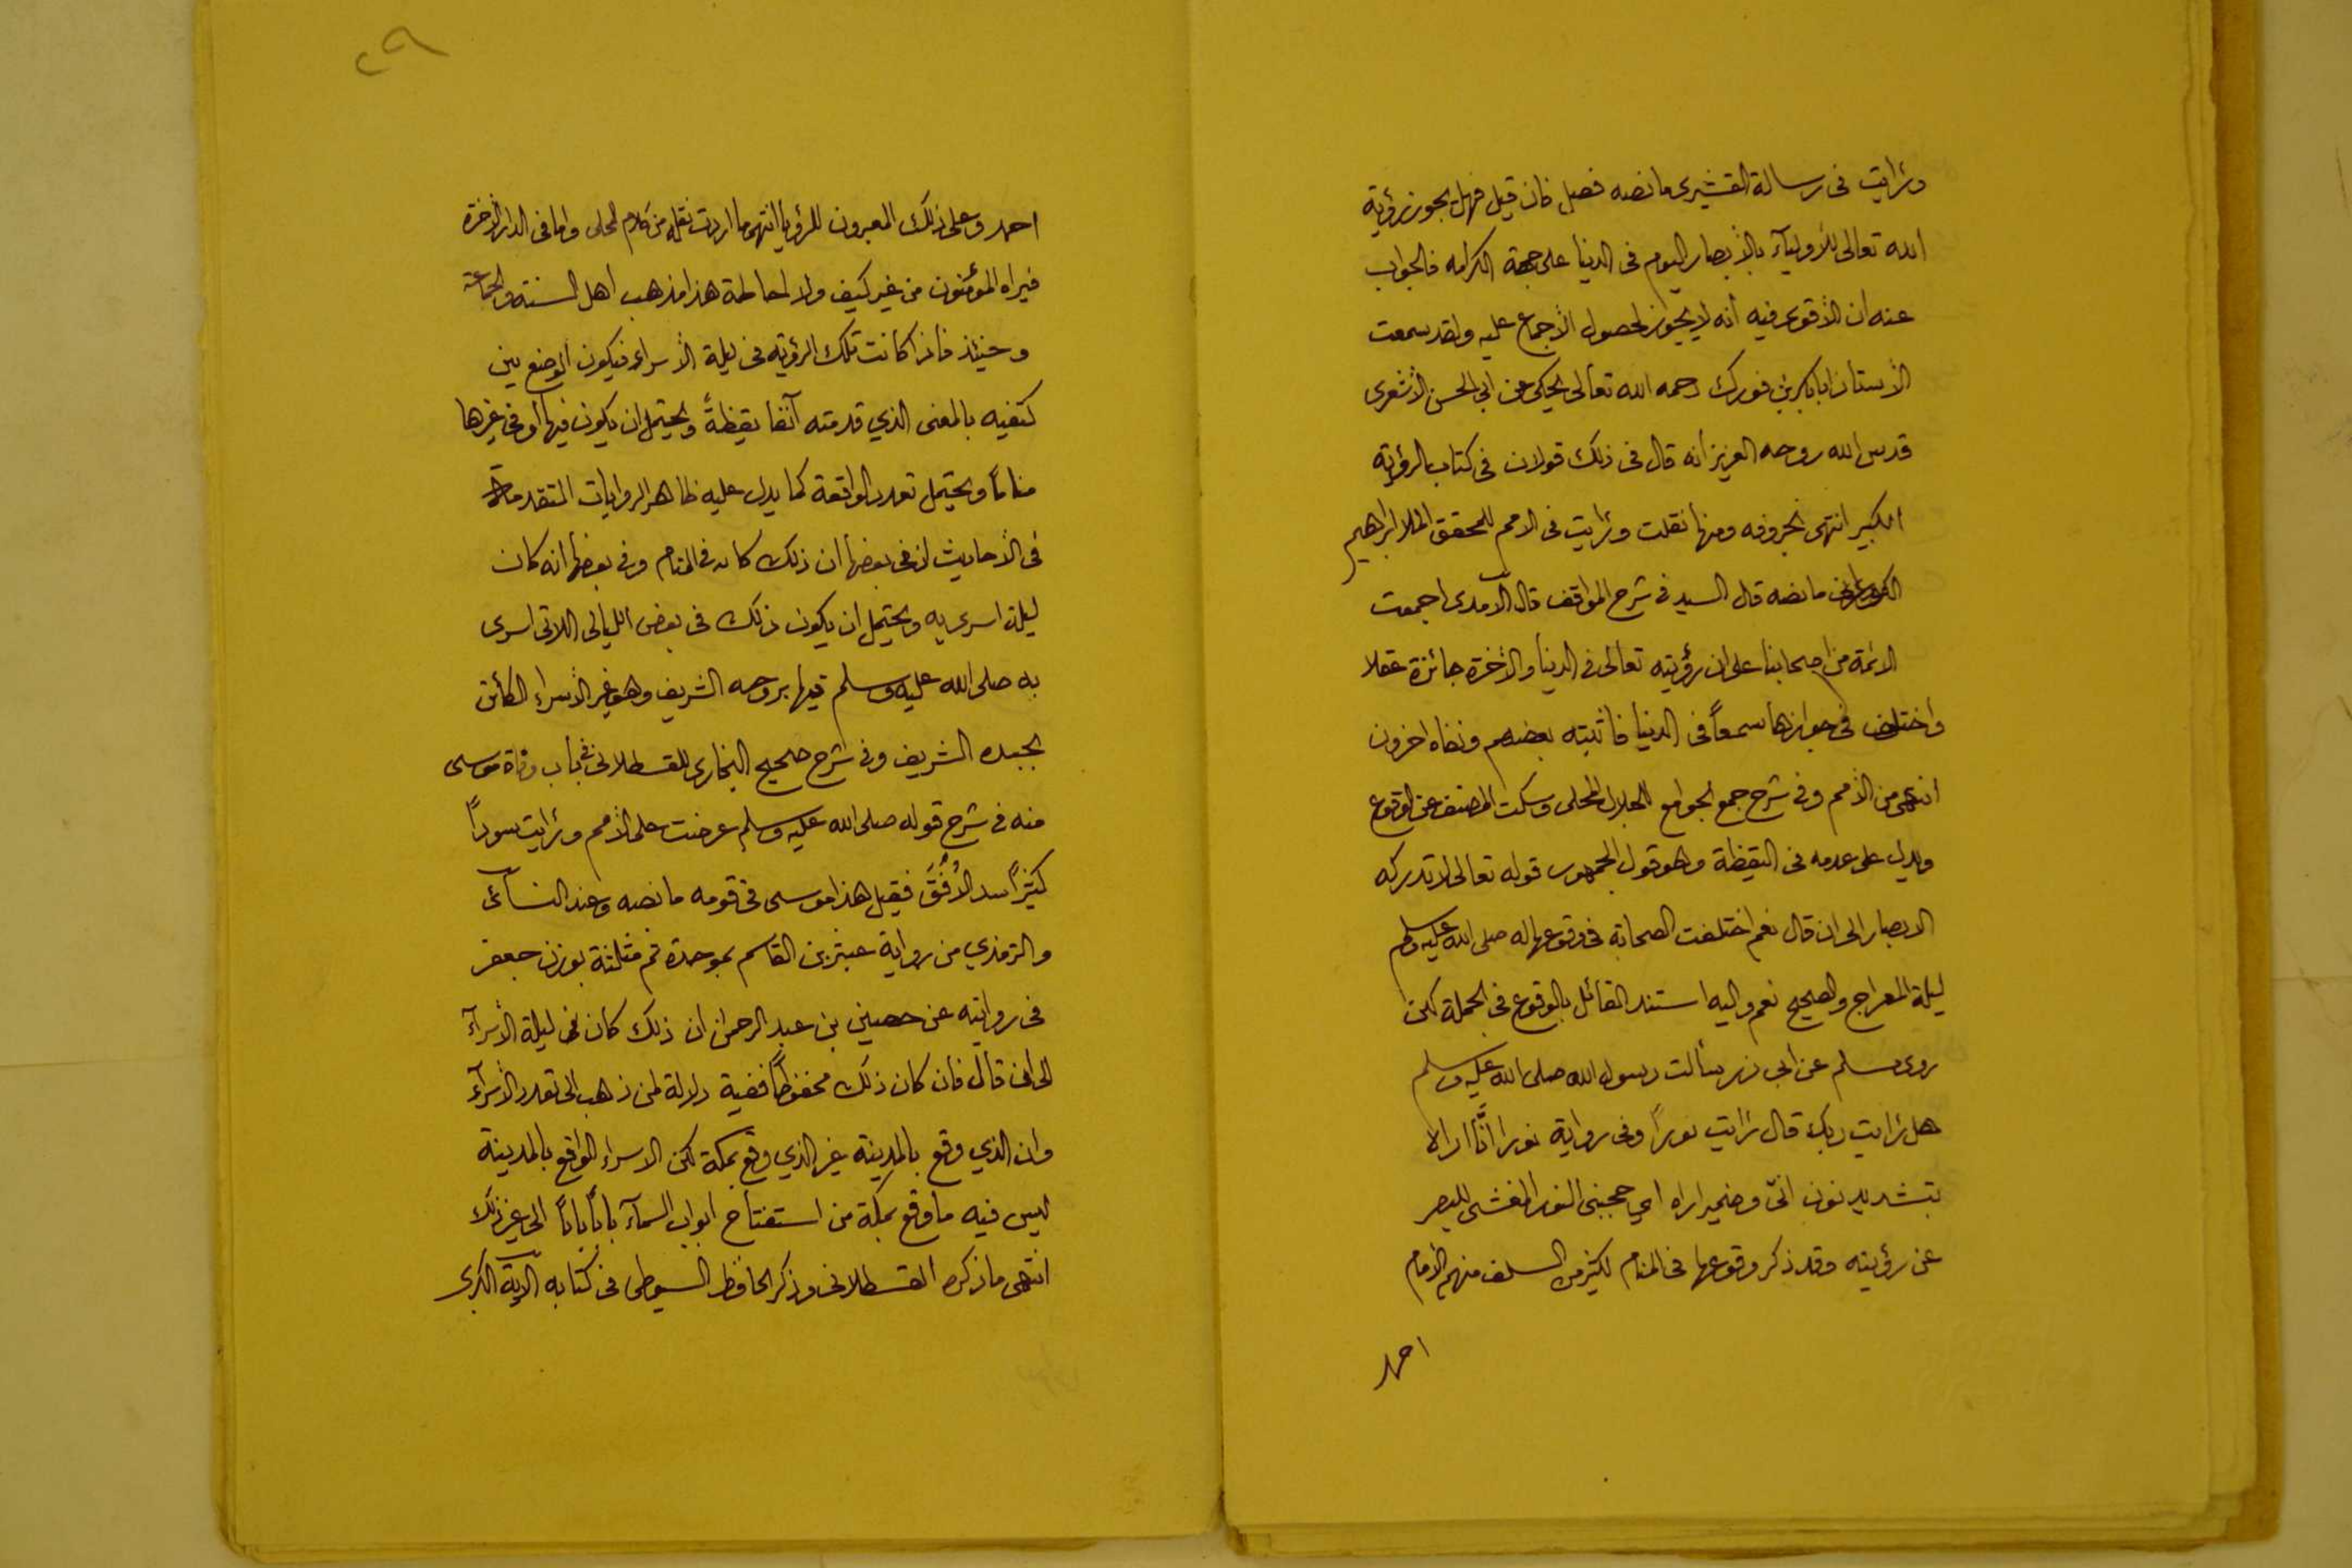 ورايت فى رسالة القشيرى ما نصه فصل فان قيل فهل يجوز رؤية
الله تعالى للأوليآء بالأبصار اليوم فى الدنيا على جهة الكرامه فالجواب
عنه ان الأقوى فيه أنه لا يجوز لحصول الأجماع عليه ولقد سمعت
الأستاذ ابابكر بن فورك رحمه الله تعالى يحكى عن ابى الحسن الأشعرى
قدس الله روحه العزيز أنه قال فى ذلك قولان فى كتاب الرؤية
الكبير انتهى بحروفه ومنها نقلت ورايت فى الامم للمحقق الملا ابراهيم
الكورانى ما نصه قال السيد فى شرح المواقف قال الآمدى اجمعت
الائمة من اصحابنا على ان رؤيته تعالى فى الدنيا والأخرة جائزة عقلا
واختلف فى جوازها سمعاً فى الدنيا فاثبته بعضهم ونفاه اخرون
انتهى من الأمم وفى شرح جمع الجوامع للجلال المحلى وسكت المصنف عن الوقوع
ويدل على عدمه فى اليقظة وهو قول الجمهور قوله تعالى لا تدركه
الابصار الى ان قال نعم اختلفت الصحابة فى وقوعها له صلى الله عليه وسلم
ليلة المعراج والصحيح نعم واليه استند القائل بالوقوع فى الجملة لكن
روى مسلم عن ابى ذر سألت رسول الله صلى الله عليه وسلم
هل رايت ربك قال رايت نوراً وفى رواية نورا انَّا اراه
بتشديد نون انّى وضمير اراه اي حجبنى النور المغشى للبصر
عن رؤيته وقد ذكر وقوعها فى المنام لكثير من السلف منهم الأمام
احمد
٢٩
احمد وعلى ذلك المعبرون للرؤيا انتهى ما اردت نقله من كلام المحلى واما فى الدار الأخرة
فيراه المؤمنون من غير كيف ولا احاطة هذا مذهب اهل السنة والجماعة
وحنيئذ فاذا كانت تلك الرؤية فى ليلة الأسراء فيكون الوضع بين
كتفيه بالمعنى الذي قدمته آنفا يقظةً ويحتمل ان يكون فيها أو فى غيرها
مناماً ويحتمل تعدد الواقعة كما يدل عليه ظاهر الروايات المتقدمة
فى الأحاديث اذ فى بعضها ان ذلك كان فى المنام وفى بعضها انه كان
ليلة اسرى به ويحتمل ان يكون ذلك فى بعض الليالى اللاتى اسرى
به صلى الله عليه وسلم فيها بروحه الشريف وهو غير الأسراء الكائن
بجسده الشريف وفى شرح صحيح البخارى للقسطلانى فى باب وفاة موسى
منه فى شرح قوله صلى الله عليه وسلم عرضت على الأمم ورايت سوداً
كثيراً سد الأُفُقَ فقيل هذا موسى فى قومه ما نصه وعند النسآئ
والترمذي من رواية عبثر بن القاسم بموحدة ثم مثلثة بوزن جعفر
فى روايته عن حصين بن عبد الرحمن ان ذلك كان فى ليلة الأسرآء
الى ان قال فان كان ذلك محفوظاً ففيه دلالة لمن ذهب الى تعدد الأسرآء
وان الذي وقع بالمدينة غير الذي وقع بمكة لكن الاسراء الواقع بالمدينة
ليس فيه ما وقع بمكة من استفتاح ابواب السمآء باباً باباً الى غير ذلك
انتهى ما ذكره القسطلانى وذكر الحافظ السيوطى فى كتابه الآية الكبرى